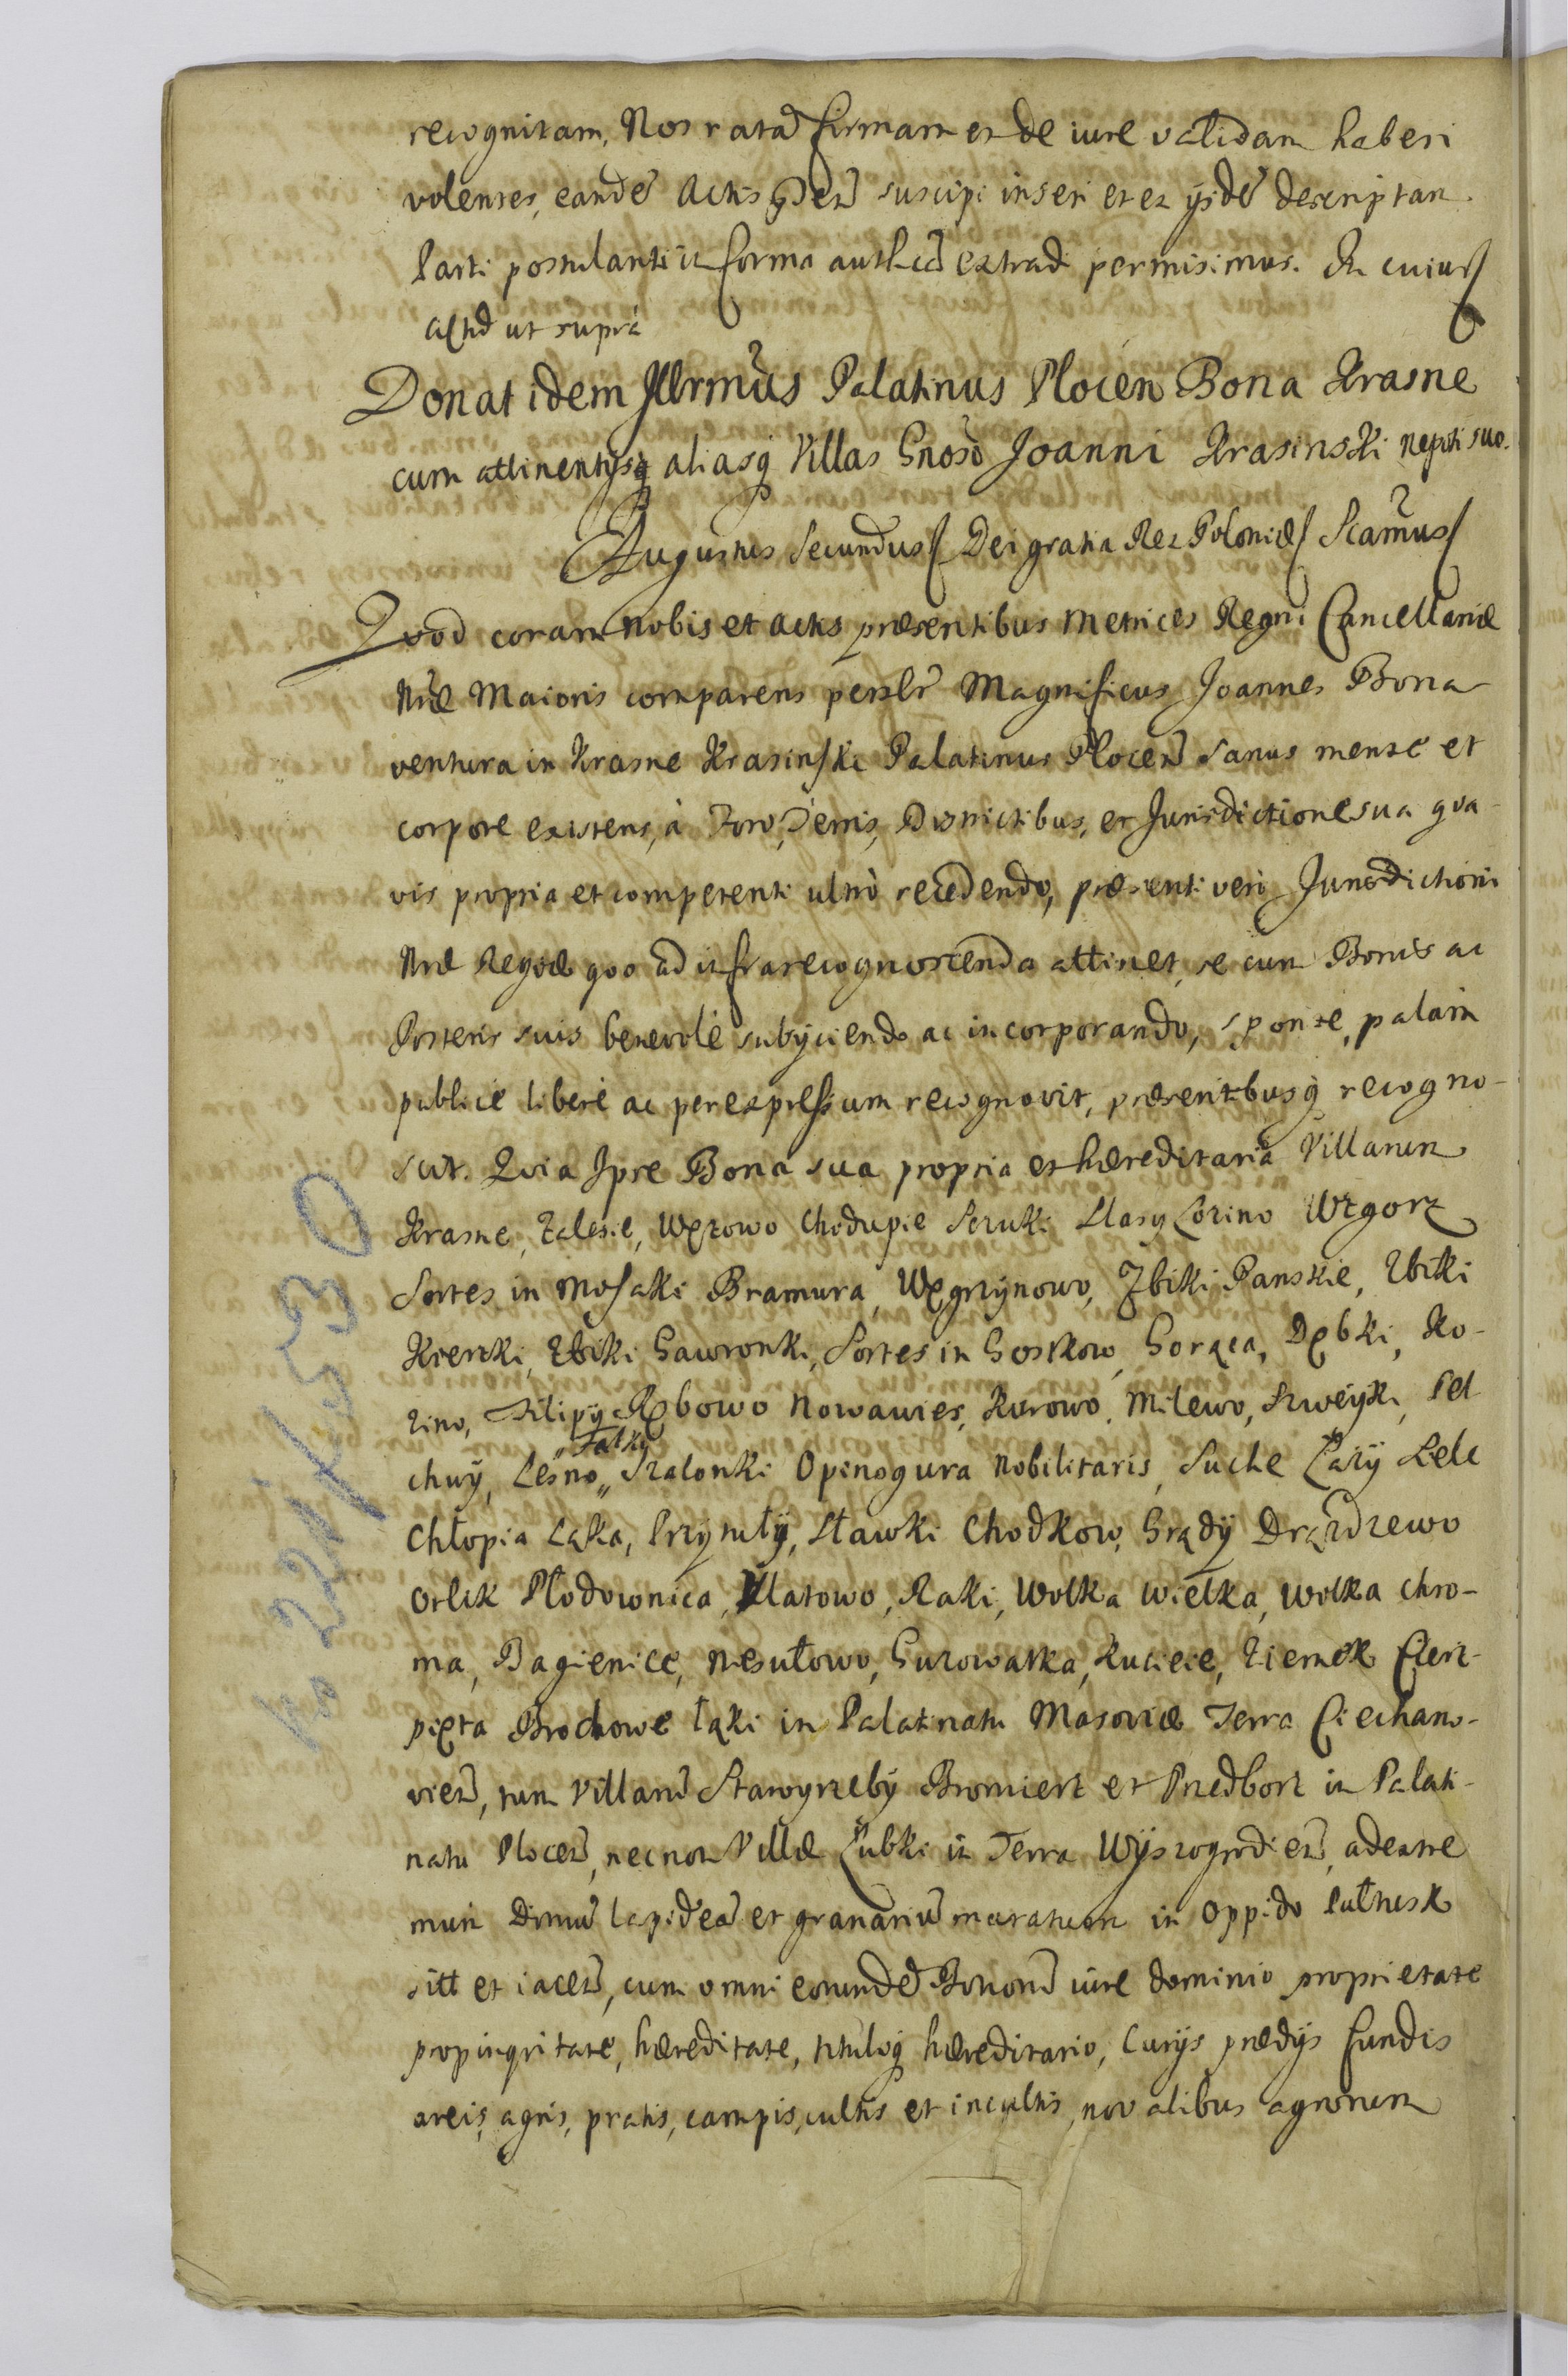 recognitam, Nos ratã firmam et de iure validam haberi
volentes, eandẽ Actis suscipi inseri et ex ijsdẽ descriptam
Parti postulanti in forma authcã extradi permisimus. In cuius
Actũ ut supra
Donat idem Illrmus Palatinus Plocen Bona Krasne
cum attinentijsq aliasq Villas Gnoso Joanni Krasinski nepoti suo.
Augustus Secundus Dei gratia Rex Poloniæ Scamus
Quod coram nobis et actis præsentibus Metrices Regni Cancellariæ
Nræ Maioris comparens persler Magnificus Joannes Bona
ventura in Krasne Krasinski Palatinus Plocen sanus mente et
corpore existens, à Foro, Terris, Districtibus, et Jurisdictione sua qua
vis propria et competenti ultrò recedendo, præsenti verò Jurisdictioni
Nræ Regiæ quo ad infra recognoscenda attinet, se cum Bonis ac
Posteris suis benevolè subijciendo ac incorporando, sponte, palàm
publicè liberè ac per expressum recognovit, præsentibusq recogno-
scit. Quia Ipse Bona sua propria et hæreditaria Villarum
Krasne, Zalesie, Wężowo Chodupie Szuki Łłasy Lozino Wzgorz
Sortes in Mosaki Bramura, Węgrzynowo, Zbiki Panskie, Zbiki
Kierzki, Zbiki Gawronki, Sortes in Gostkow, Gorąca, Dębki, Ko-
zino, Filipy Rębowo Nowawies, Kurowo, Milewo, Szweyki, Pel
chwÿ, Lesno „Falki„ Szalonki Opinogura Nobilitaris, Suche Łazÿ Lele
Chłopia Łąka, Przytułÿ, Sławki Chodkow, Grądÿ Drązdzewo
Orlik Płodownica, Ułatowo, Raki, Wolka Wielka, Wolka chro-
ma, Bagienice, Niesułowo, Gurowatka, Kuciecie, Ziemek Cierz-
pięta Brochowe łąki in Palatinatu Masoviæ Terra Ciechano-
vien, tum Villarũ Starogrzebÿ Bromierz et Przedborz in Palati-
natu Plocen, necnon Villæ Łubki in Terra Wÿszogrodien, adextre
mum Domũ lapideã et granariũ muratum in Oppido Pułtusk
sitt et iacen, cum omni eorundẽ Bonorũ iure dominio proprietate
propinquitate, hæreditate, tituloq hæreditario, Curijs prædijs fundis
areis, agris, pratis, campis, cultis et incultis, novalibus agrorum